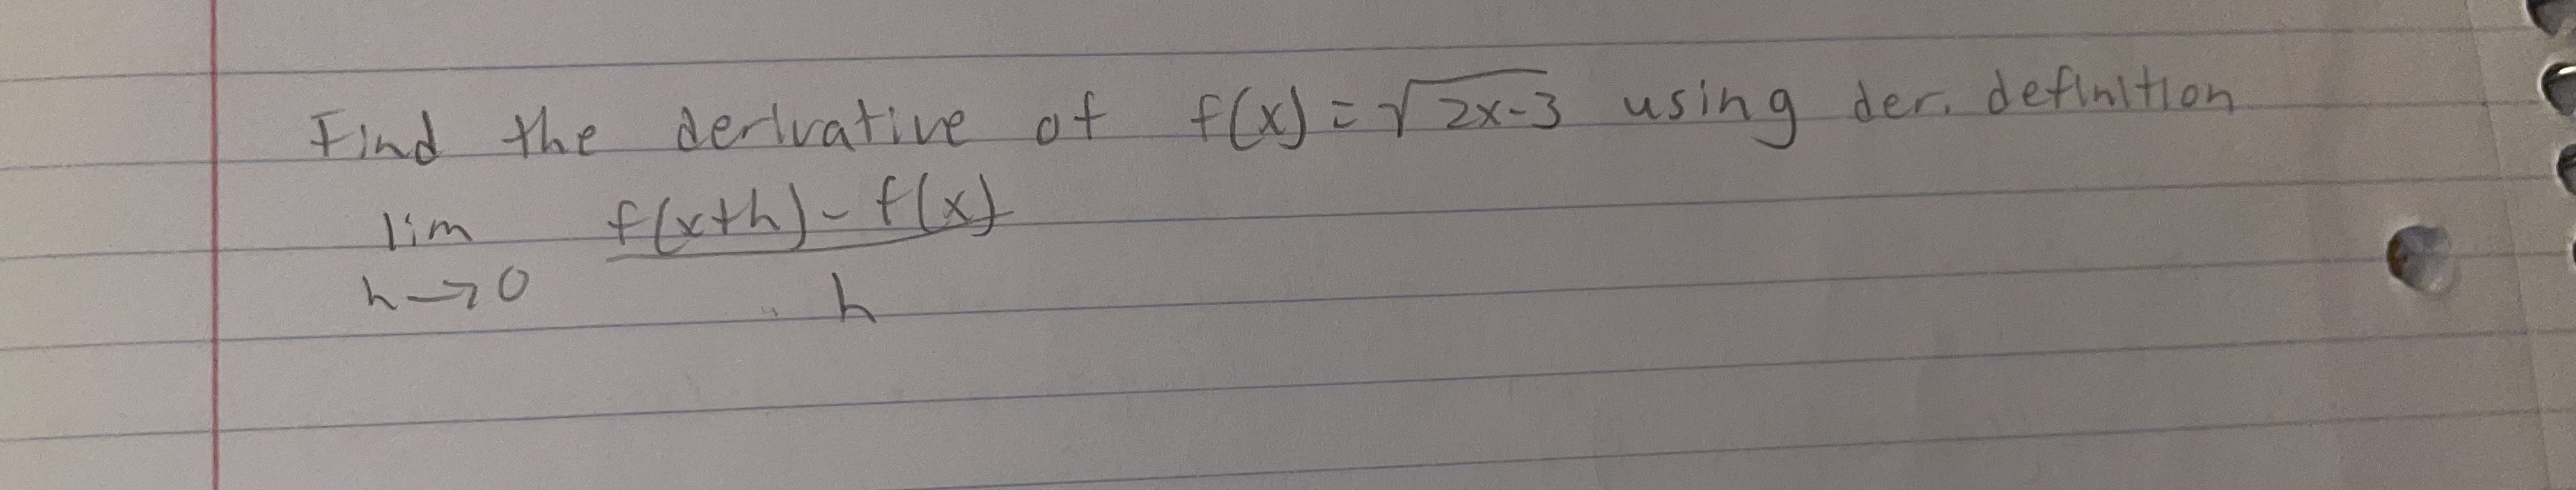 Find the derivative of f(x) = √2x-3 using der. definition
lim f(x+h) - f(x)
h→0 h